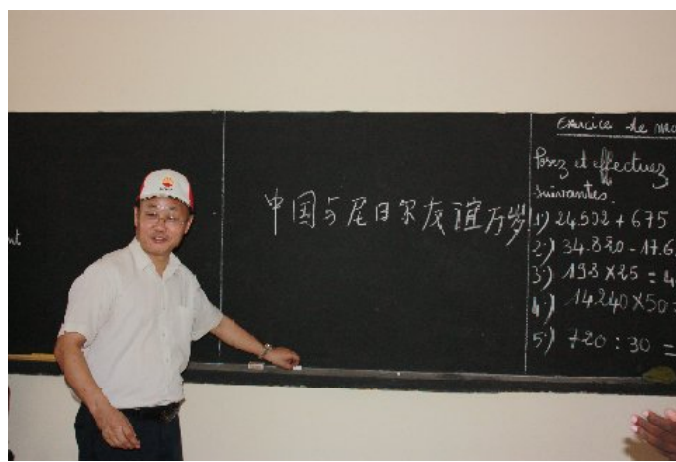 nt
中国与尼日尔友谊万岁
Exercice de
Posez et effectuez
suivantes.
1) 24.532 + 675
2) 34.820 - 17.6
3) 198 X 25 = 4
4) 14.240 X 50 =
5) 720 : 30 =